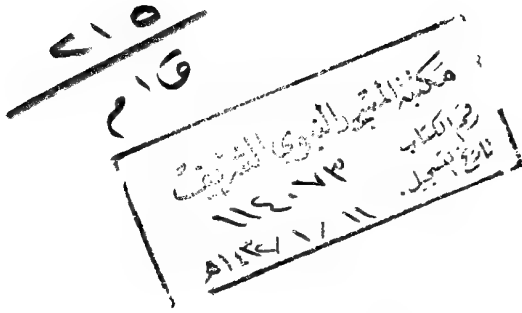 ٢١٥
ق ا م
مكتبة المسجد النبوي الشريف
رقم الكتاب ١١٤٠٧٣
تاريخ التسجيل. ١١ / ١ / ١٤٣٢هـ